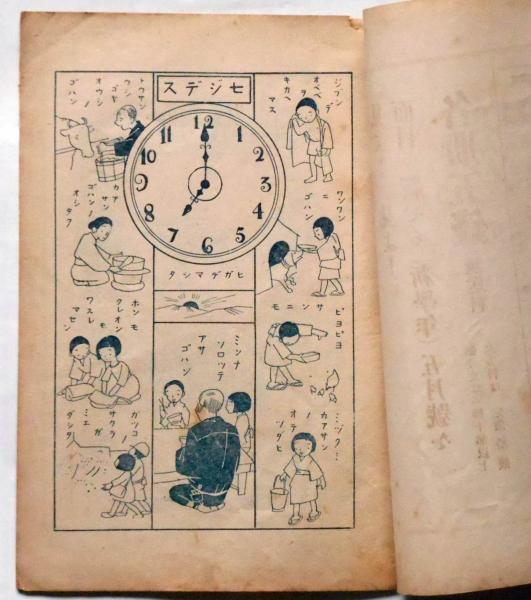 七ジデス
12
1
2
3
4
5
6
7
8
9
10
11
ヒガデマシタ
ジブンデ
オベベヲ
キカヘ
マス
ワンワン
ニ
ゴハン
ピヨピヨ
サンニモ
ミヅクミ
カアサン
ノ
オテ
ツダヒ
ミンナ
ソロッテ
アサ
ゴハン
トウサン
ウシ
ゴヤ
オウシ
ノ
ゴハン
カア
サン
ゴハンノ
オシタク
ホンモ
クレオン
モ
ワスレ
マセン
ガツコ
ノ
サクラ
ガ
ミエ
ダシタ